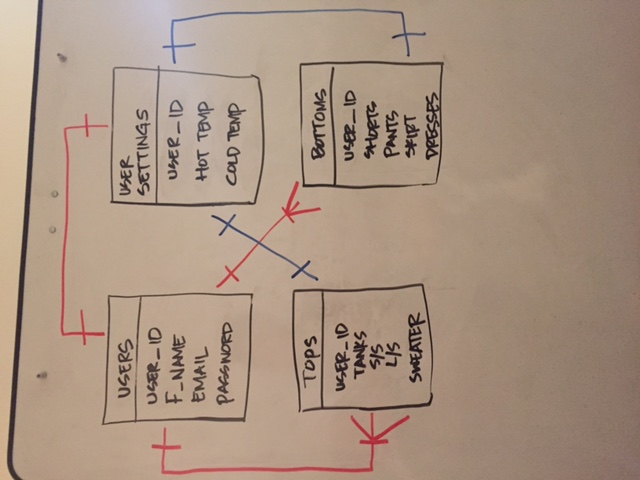 USERS
USER_ID
F_NAME
EMAIL
PASSWORD
USER
SETTINGS
USER_ID
HOT TEMP
COLD TEMP
TOPS
USER_ID
TANKS
S/S
L/S
SWEATER
BOTTOMS
USER_ID
SHORTS
PANTS
SKIRT
DRESSES